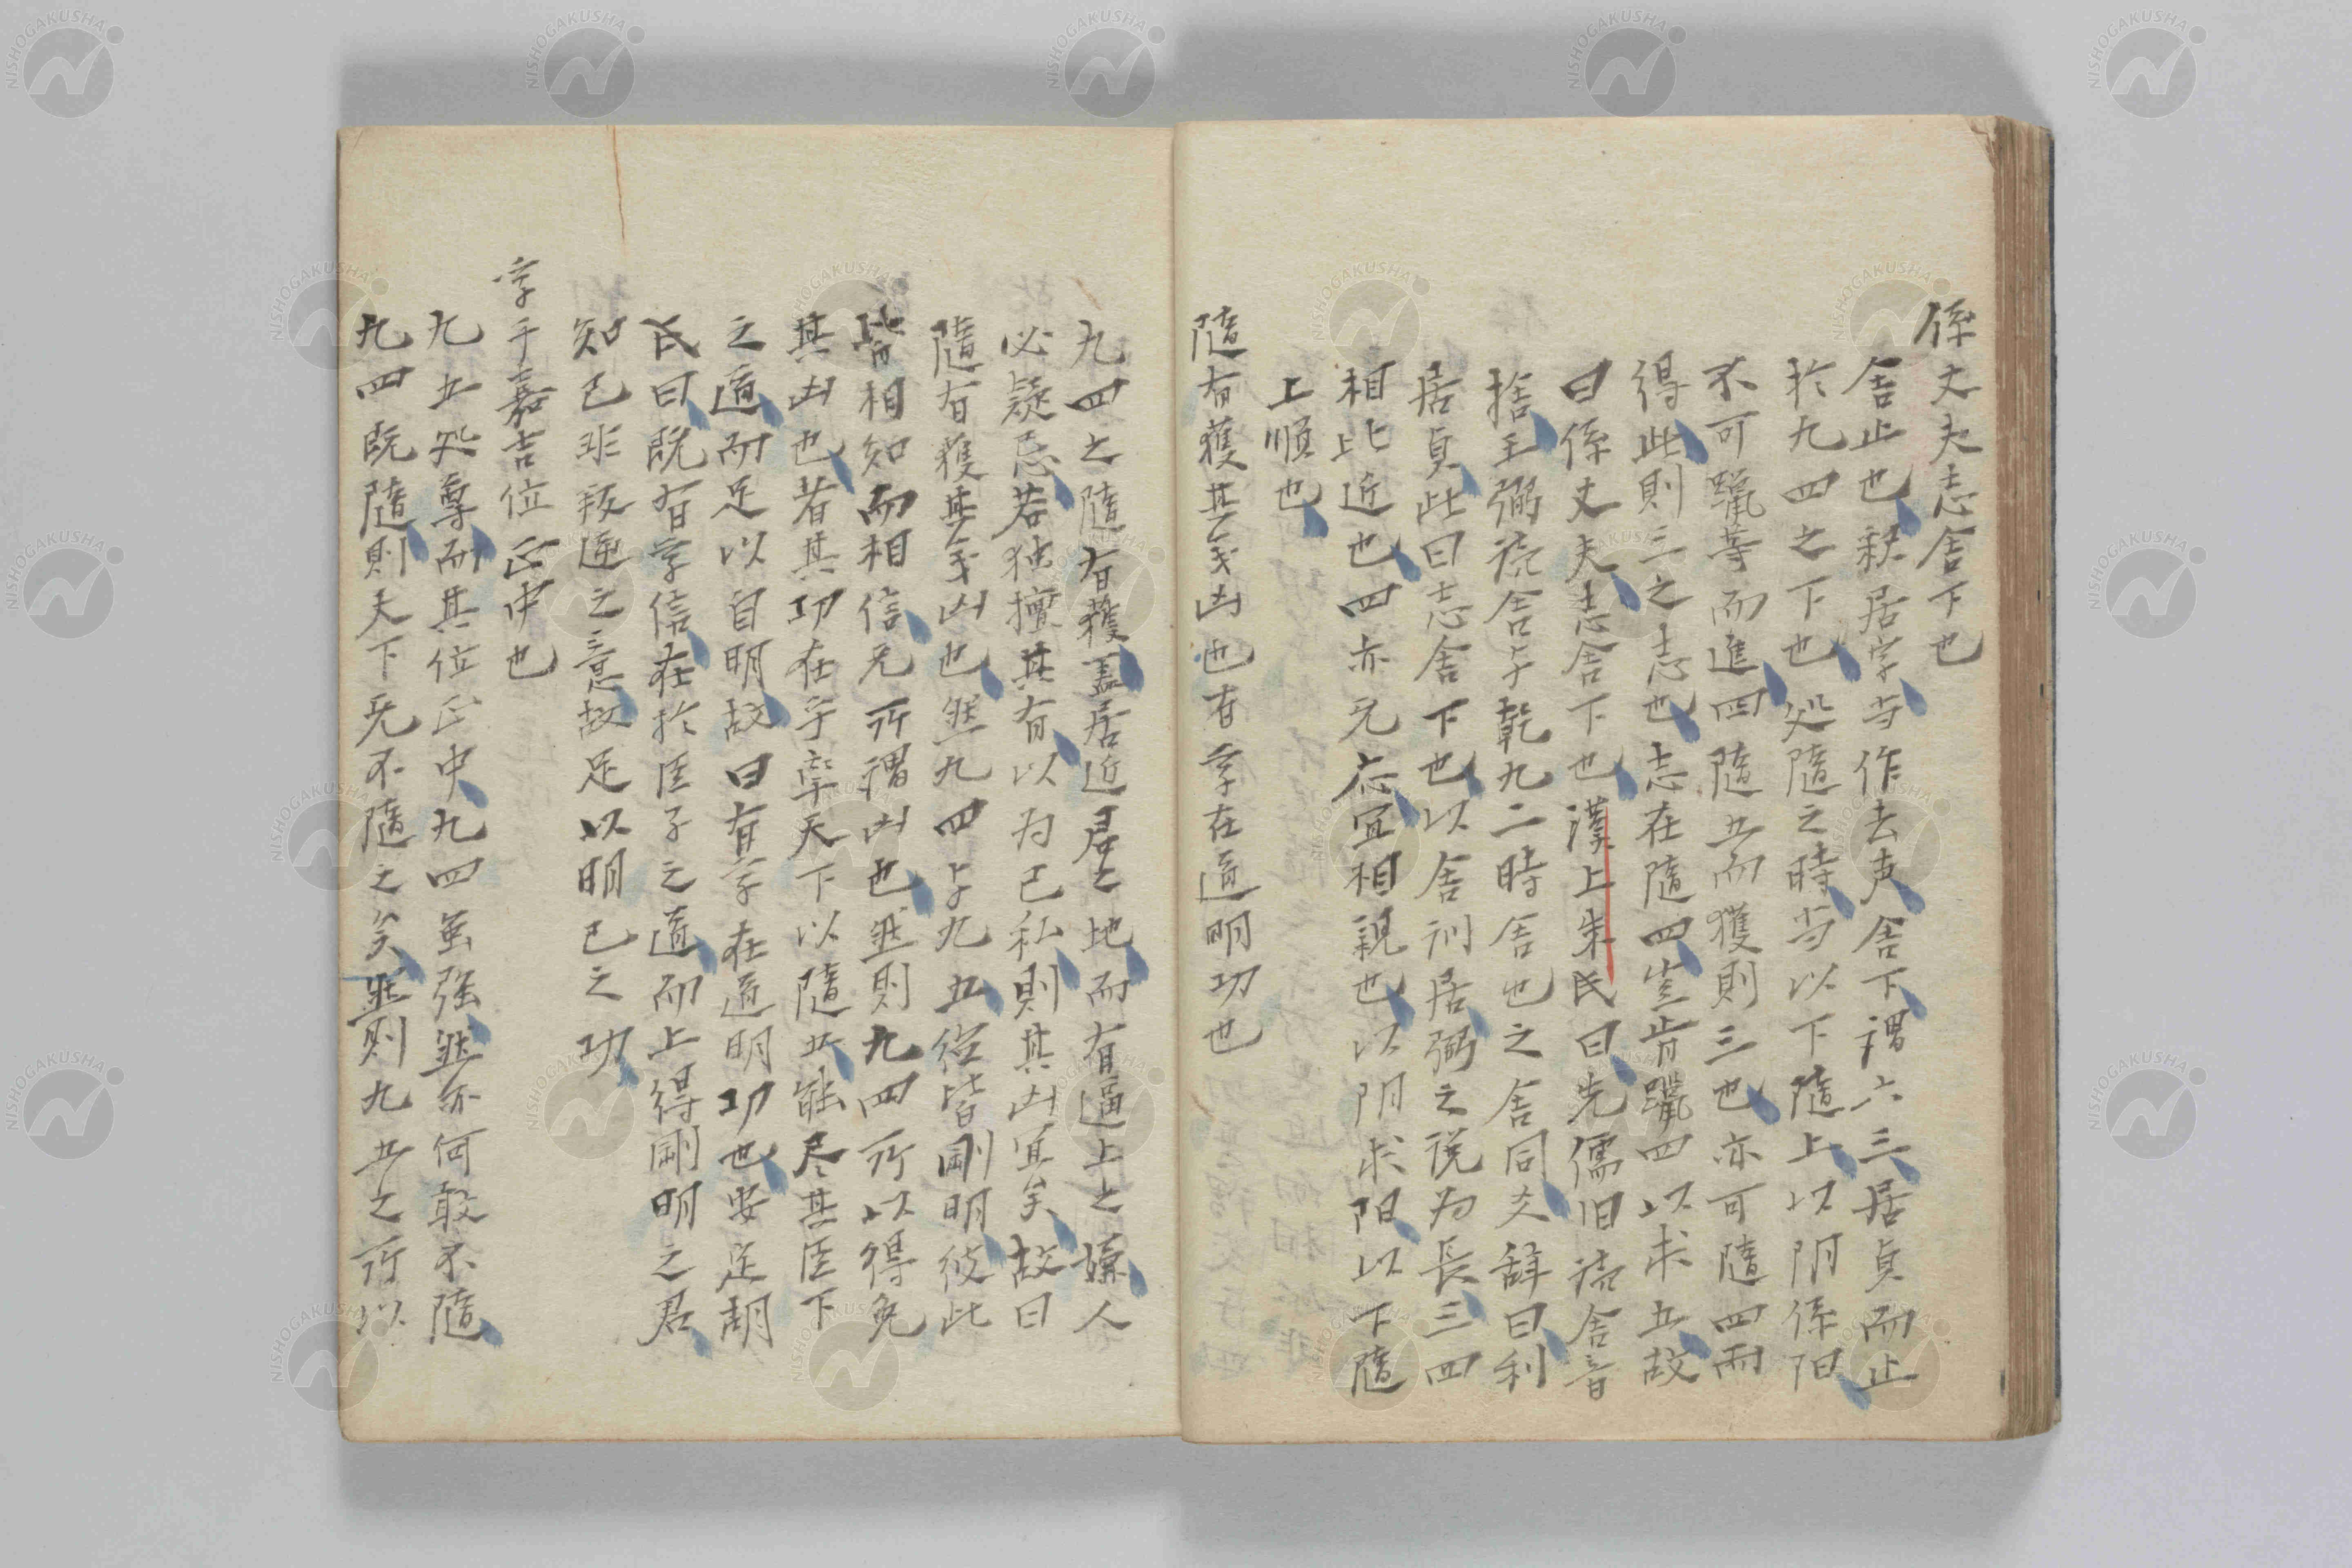 係丈夫志舍下也
舍止也釈居字当作去声舍下謂六三居貞而止
於九四之下也処隨之時当以下隨上以阴係阳
不可躐等而進四隨五而獲則三也亦可隨四而
得此則三之志也志在隨四豈肯躐四以求五故
曰係丈夫志舍下也漢上朱氏曰先儒旧読舍音
捨王弼読舍与乾九二時舍也之舍同爻辞曰利
居貞此曰志舍下也以舍訓居弼之説为長三四
相比近也四亦无応宜相親也以阴求阳以下隨
上順也
隨有獲其義凶也有孚在道明功也
九四之隨有獲盖居近君之地而有逼上之嫌人
必疑忌若独擅其有以为已私則其凶宜矣故曰
隨有獲其義凶也然九四与九五位皆剛明彼此
皆相知而相信无所謂凶也然則九四所以得免
其凶也者其功在乎率天下以隨五能尽其臣下
之道而足以自明故曰有孚在道明功也安定胡
氏曰既有孚信在於臣子之道而上得剛明之君
知己非叛逆之意故足以明己之功
孚于嘉吉位正中也
九五処尊而其位正中九四虽强然亦何敢不隨
九四既隨則天下无不隨之矣然則九五之所以
NISHOGAKUSHA